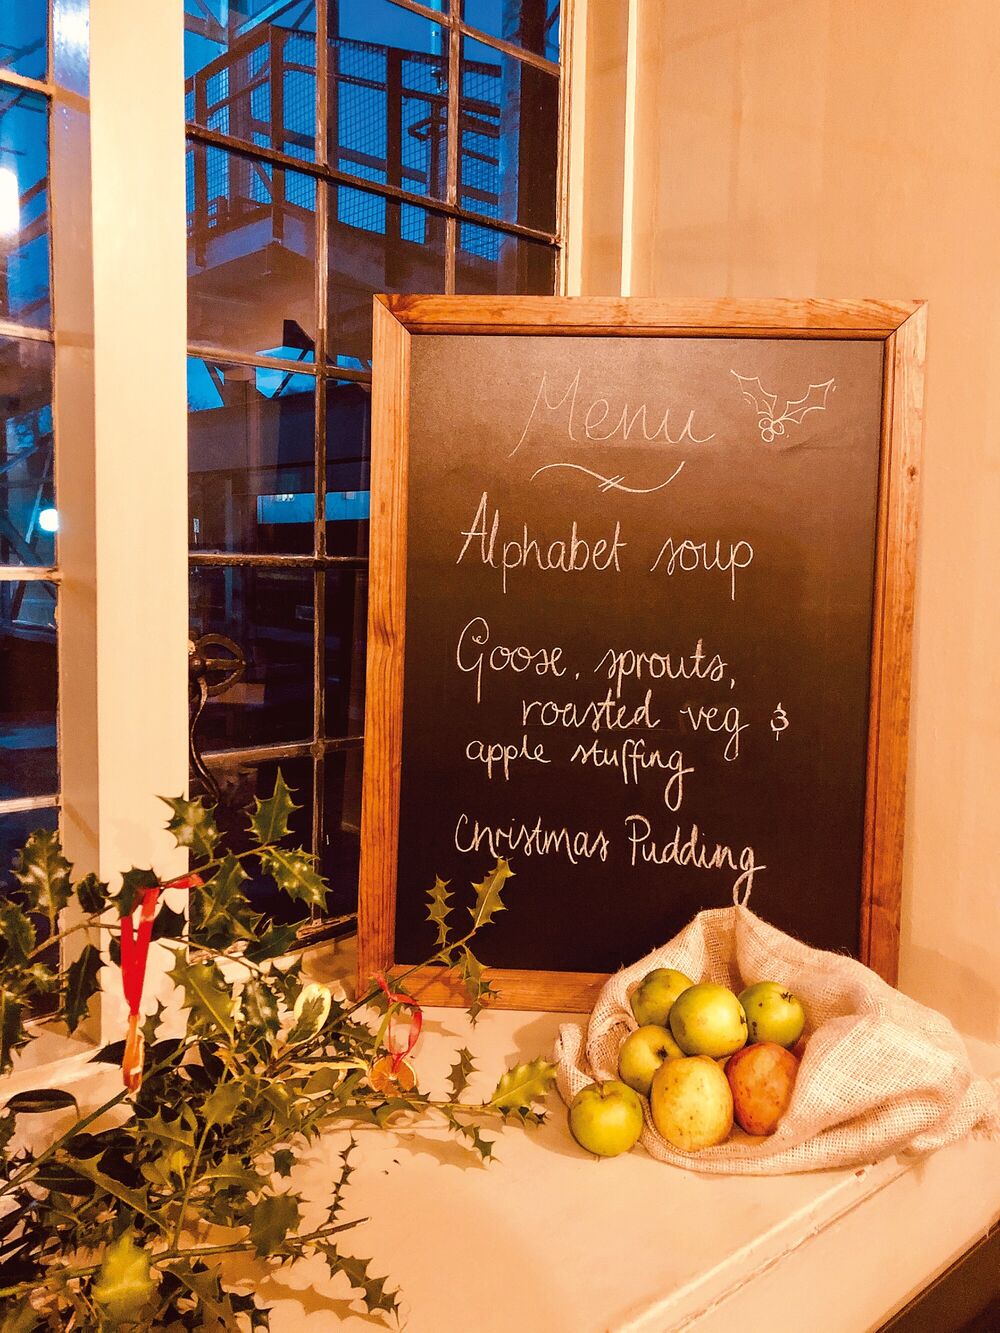 Menu
Alphabet soup
Goose, sprouts,
roasted veg &
apple stuffing
Christmas Pudding